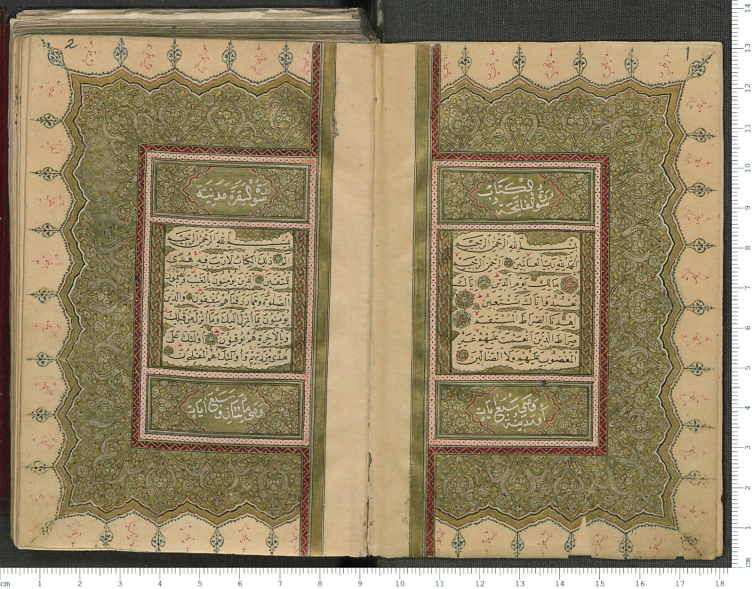 1
سورة فاتحة الكتاب
بسم الله الرحمن الرحيم
الحمد لله رب العالمين الرحمن الرحيم
مالك يوم الدين اياك
نعبد واياك نستعين
اهدنا الصراط المستقيم
صراط الذين انعمت عليهم غير
المغضوب عليهم ولا الضالين
وهي سبع ايات
او مدنية
2
سورة البقرة مدنية
بسم الله الرحمن الرحيم
الم ذلك الكتاب لا ريب فيه هدى
للمتقين الذين يؤمنون بالغيب ويقيمون
الصلوة ومما رزقناهم ينفقون والذين
يؤمنون بما انزل اليك وما انزل من قبلك
وبالاخرة هم يوقنون اولئك على
هدى من ربهم واولئك هم المفلحون
وهي مايتان وسبع ايات
cm 1 2 3 4 5 6 7 8 9 10 11 12 13 14 15 16 17 18
cm 1 2 3 4 5 6 7 8 9 10 11 12 13 14